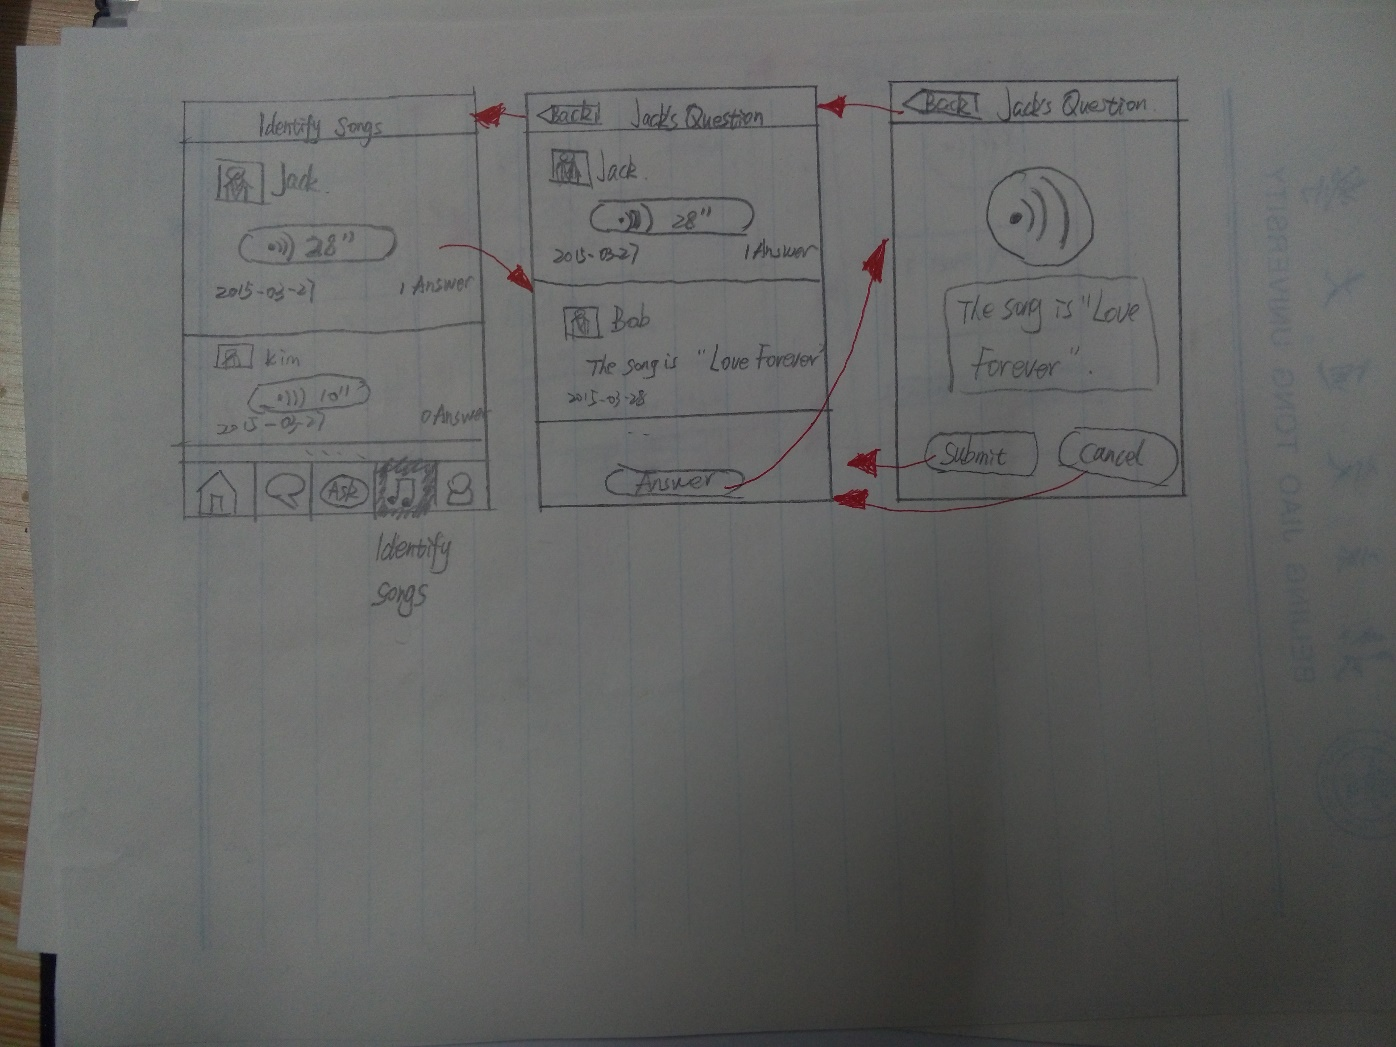 Identify Songs
Jack.
28"
2015-03-27 1 Answer
kim
10"
2015-03-27 0 Answer
Ask
Identify
songs
Back Jack's Question
Jack.
28"
2015-03-27 1 Answer
Bob
The song is "Love Forever"
2015-03-28
Answer
Back Jack's Question.
The song is "Love
Forever".
Submit Cancel
BEIJING JIAO TONG UNIVERSITY